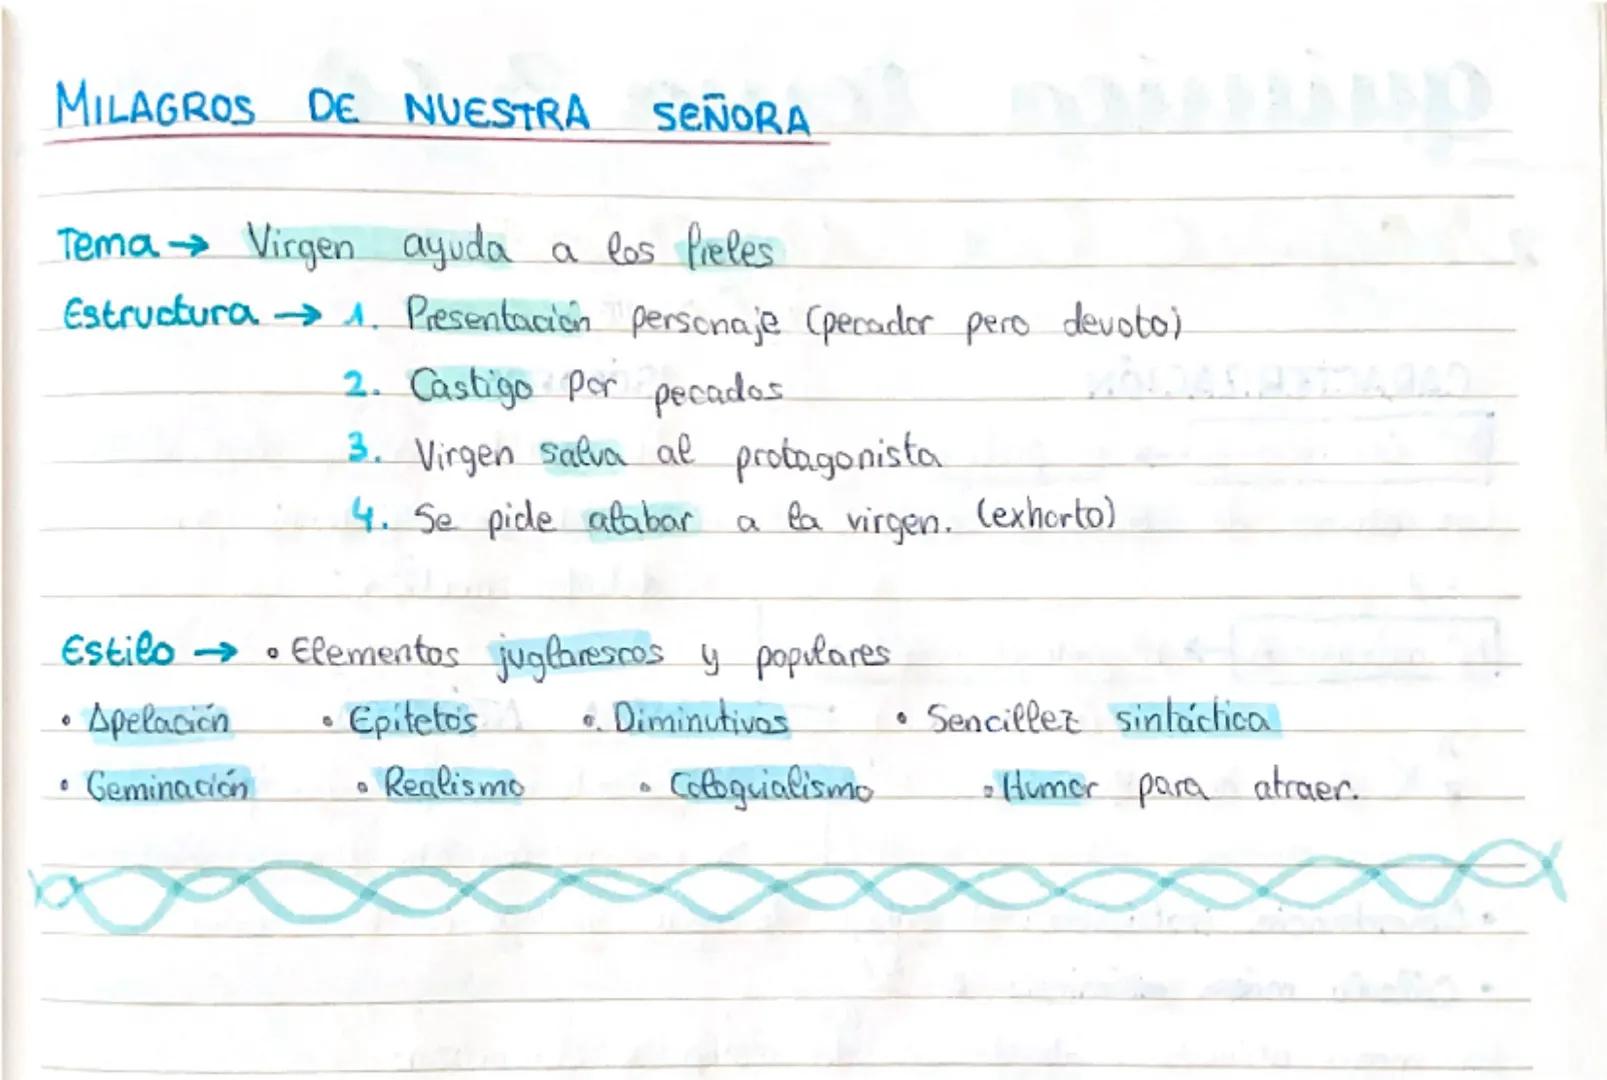 MILAGROS DE NUESTRA SEÑORA
Tema → Virgen ayuda a los fieles
Estructura → 1. Presentación personaje (pecador pero devoto)
2. Castigo por pecados
3. Virgen salva al protagonista
4. Se pide alabar a la virgen. (exhorto)
Estilo → • Elementos juglarescos y populares
• Apelación • Epítetos • Diminutivos • Sencillez sintáctica
• Geminación • Realismo • Coloquialismo • Humor para atraer.